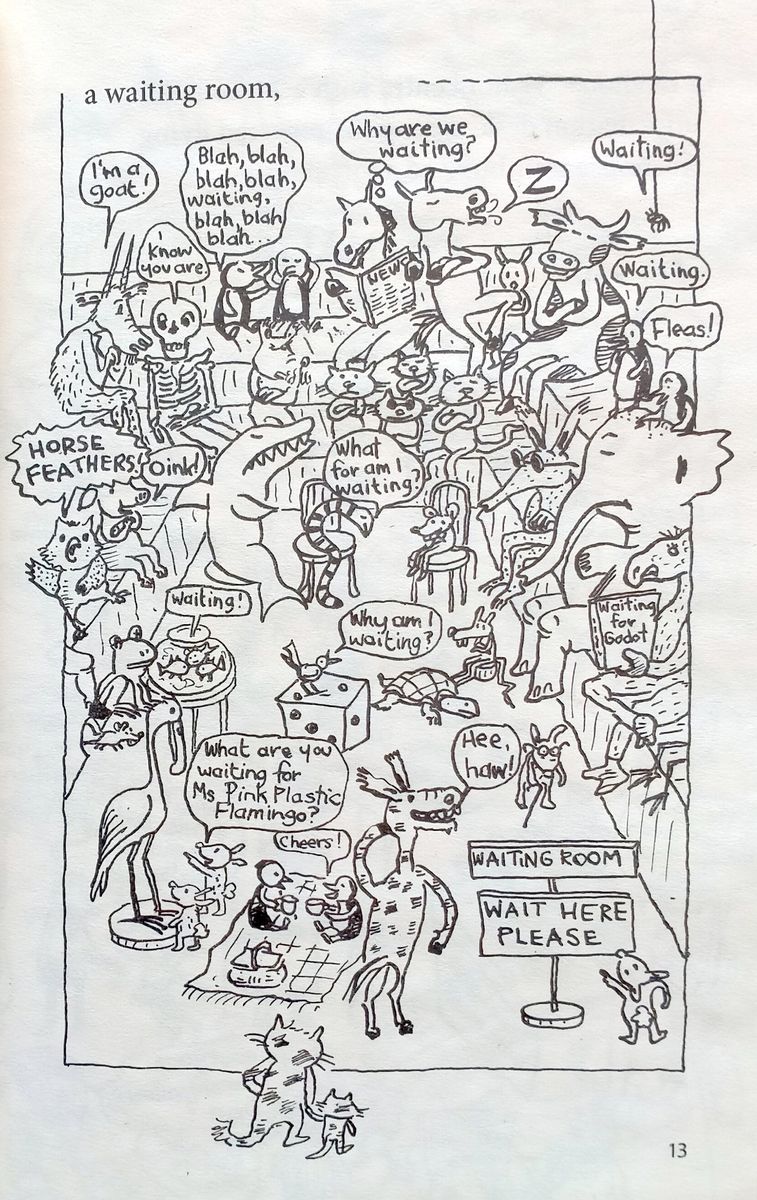 a waiting room,
I'm a
goat!
I know
you are.
Blah, blah,
blah, blah,
waiting,
blah, blah
blah...
Why are we
waiting?
Z
Waiting!
NEW
Waiting.
Fleas!
HORSE
FEATHERS!
Oink!
What
for am I
waiting?
Waiting
for
Godot
Waiting!
Why am I
waiting?
What are you
waiting for
Ms Pink Plastic
Flamingo?
Cheers!
Hee,
haw!
WAITING ROOM
WAIT HERE
PLEASE
13